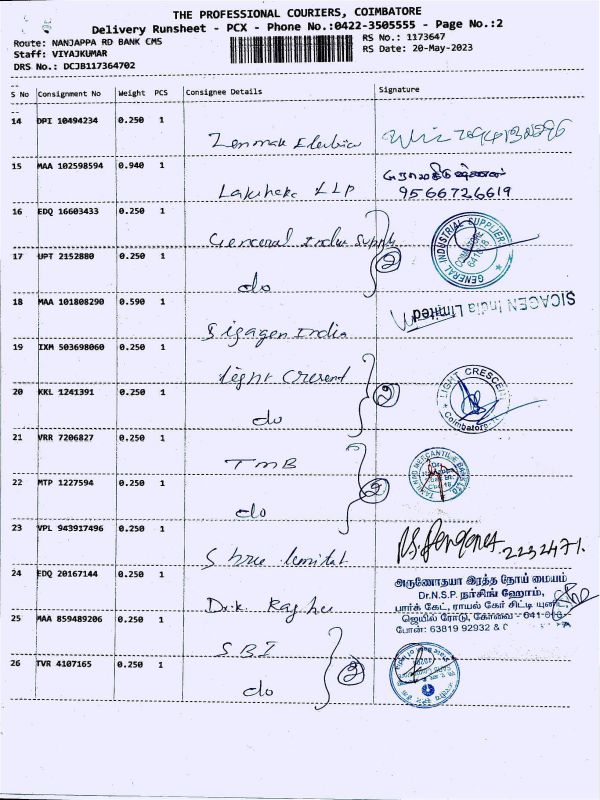 THE PROFESSIONAL COURIERS, COIMBATORE
Delivery Runsheet - PCX - Phone No.:0422-3505555 - Page No.:2
Route: NANJAPPA RD BANK CMS
RS No.: 1173647
Staff: VIYAJKUMAR
RS Date: 20-May-2023
DRS No.: DCJB117364702
S No Consignment No Weight PCS Consignee Details Signature
14 DPI 10494234 0.250 1
15 MAA 102598594 0.940 1
LLP
9566726619
16 EDQ 16603433 0.250 1
General India Supply
2
GENERAL INDUSTRIAL SUPPLIERS
17 UPT 2152880 0.250 1
do
18 MAA 101808290 0.590 1
Sigagen India
SICAGEN India Limited
19 IXM 503698060 0.250 1
light Cresend
2
LIGHT CRESCENT
Coimbatore
20 KKL 1241391 0.250 1
do
21 VRR 7206827 0.250 1
TMB
2
22 MTP 1227594 0.250 1
do
23 VPL 943917496 0.250 1
2232471.
24 EDQ 20167144 0.250 1
அருணோதயா இரத்த நோய் மையம்
Dr.N.S.P. நர்சிங் ஹோம்,
பார்க் கேட், ராயல் கேர் சிட்டி யூனிட்,
ஜெயில் ரோடு, கோவை - 641 0
போன்: 63819 92932 &
25 MAA 859489206 0.250 1
SBI
2
26 TVR 4107165 0.250 1
do